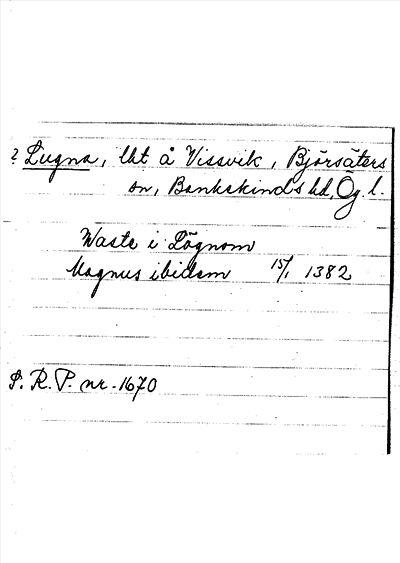 ? Lugna, lht å Vissvik, Björsäters
sn, Bankekinds hd, Ög l.
Waste i Lögnom
Magnus ibidem 15/1 1382
S. R. P. nr. 1670